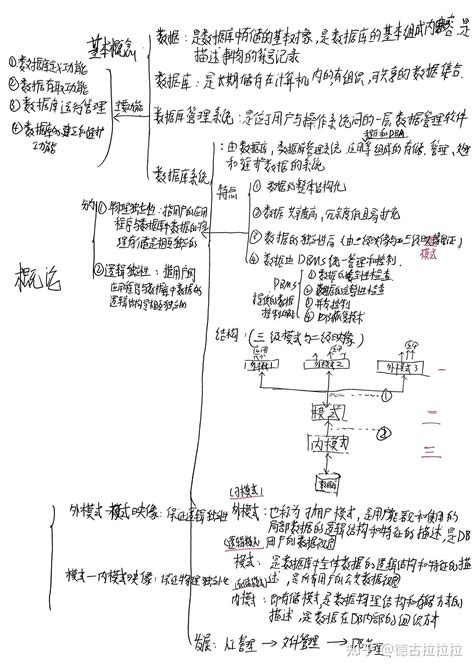 概论
基本概念
数据：是数据库中存储的基本对象，是数据库的基本组成内容，是
描述事物的符号记录
数据库：是长期储存在计算机内的、有组织，可共享的数据集合
数据库管理系统：是位于用户与操作系统间的一层数据管理软件
主要功能
①数据定义功能
②数据存取功能
③数据库运行管理
④数据库的建立和维护
功能
数据库系统
：由数据库，数据库管理系统，应用等组成的存储、管理、处理
和DBA
和维护数据的系统
特点
①数据的整体结构化
②数据共享度高，冗余度低且易扩充
③数据的独立性高
④数据由DBMS统一管理和控制
模式
DBMS
提供的数据
控制功能
①数据的安全性检查
②数据的完整性检查
③并发控制
④DB恢复技术
分为
①物理独立性：指用户的应用
程序与数据库中数据的物
理存储是相互独立的
②逻辑独立性：指用户的
应用程序与数据库中数据的
逻辑结构是相互独立的
结构：（三级模式与二级映像）
应用
应用
应用
外模式1
外模式2
外模式3
一
①
模式
二
②
内模式
三
数据库
外模式—模式映像：保证逻辑独立性
模式—内模式映像：保证物理独立性
（子模式）
外模式：也称为子模式或用户模式，是用户能看见和使用的
局部数据的逻辑结构和特征的描述，是DB
用户的数据视图
（逻辑模式）
模式：是数据库中全体数据的逻辑结构和特征的描
述，是所有用户的公共数据视图
（存储模式）
内模式：即存储模式，是数据物理结构和存储方式的
描述，是数据在DB内部的组织方式
发展：人工管理→文件管理→DB管理
知乎 @德古拉拉拉